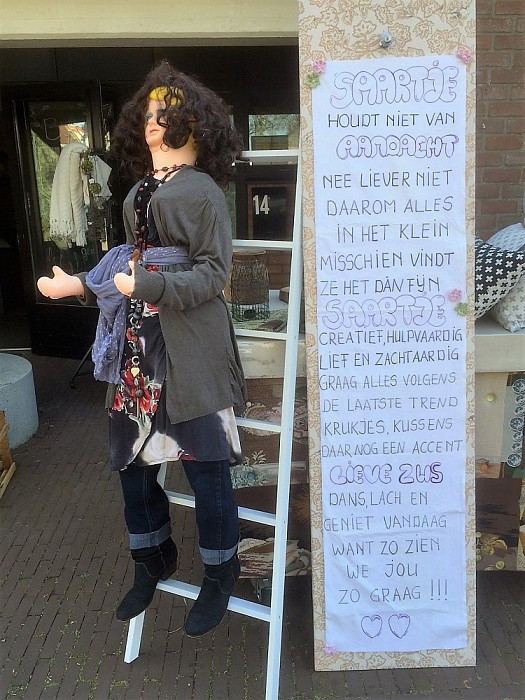 14
SAARTJE
HOUDT NIET VAN
AANDACHT
NEE LIEVER NIET
DAAROM ALLES
IN HET KLEIN
MISSCHIEN VINDT
ZE HET DÀN FIJN
SAARTJE
CREATIEF, HULPVAARDIG
LIEF EN ZACHTAARDIG
GRAAG ALLES VOLGENS
DE LAATSTE TREND
KRUKJES, KUSSENS
DAAR NOG EEN ACCENT
LIEVE ZUS
DANS, LACH EN
GENIET VANDAAG
WANT ZO ZIEN
WE JOU
ZO GRAAG !!!